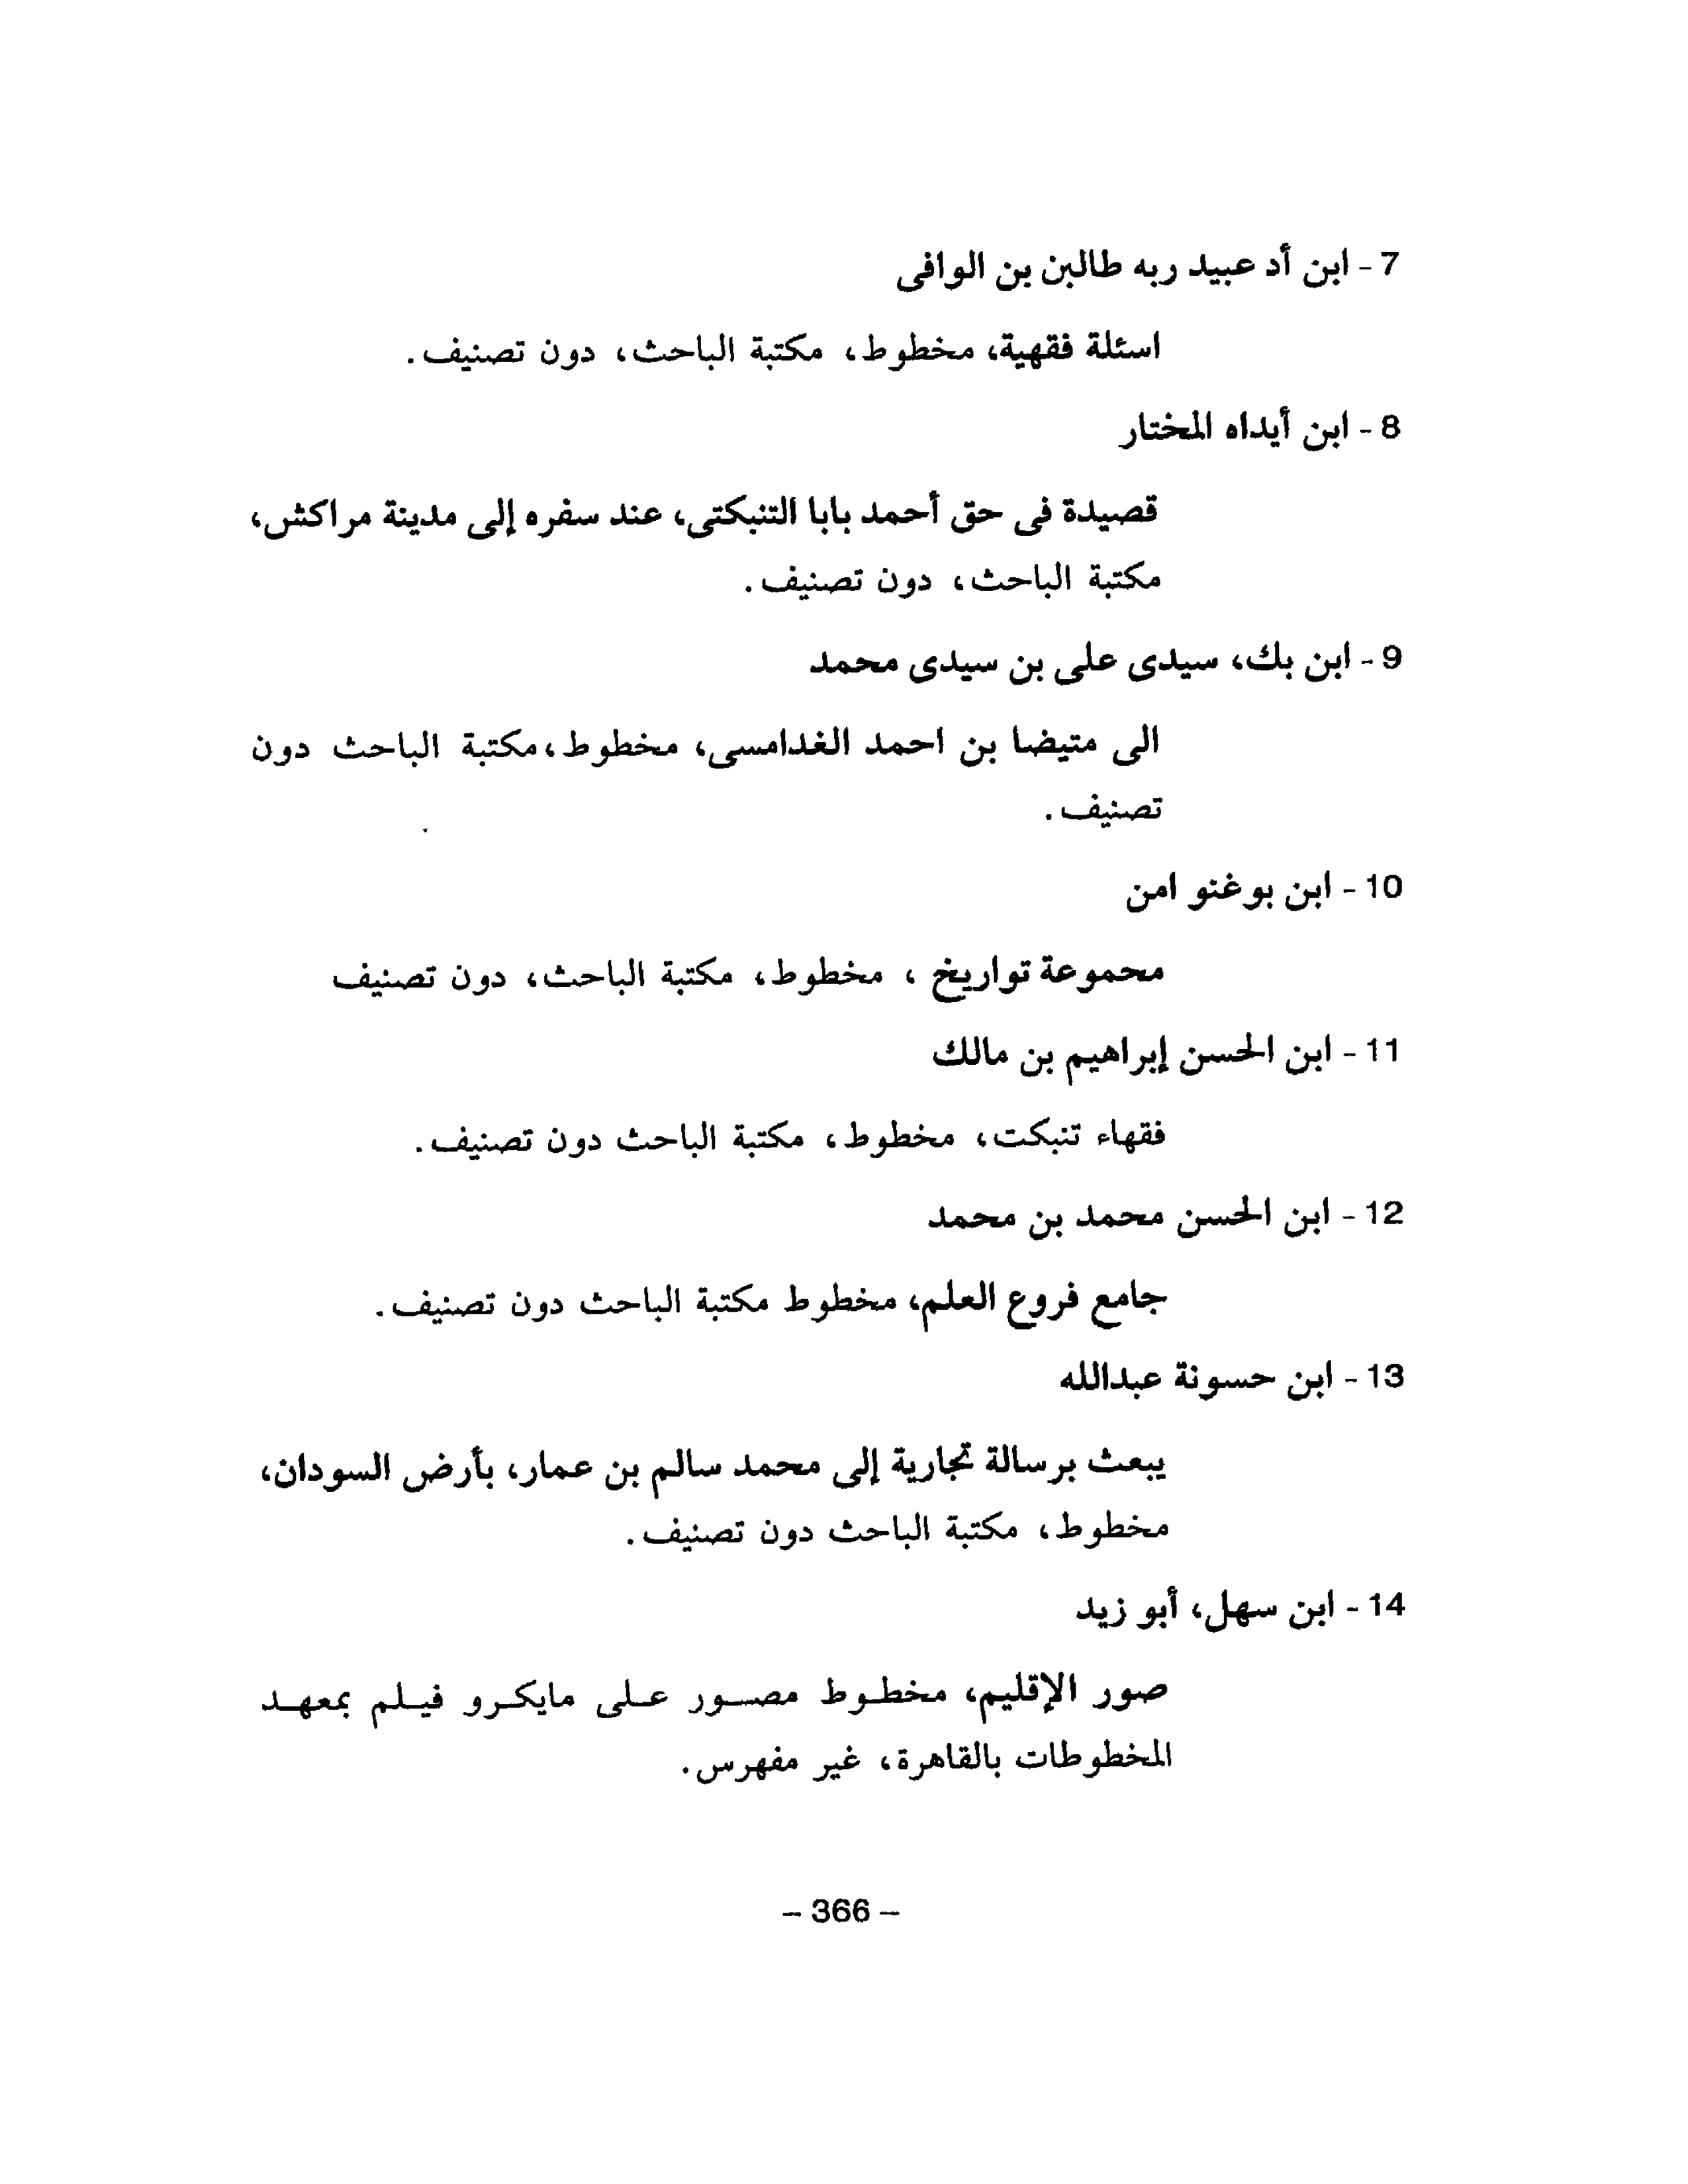 7 - ابن أد عبيد ربه طالبن بن الوافى
اسئلة فقهية، مخطوط، مكتبة الباحث، دون تصنيف.
8 - ابن أيداه المختار
قصيدة فى حق أحمد بابا التنبكتى، عند سفره إلى مدينة مراكش،
مكتبة الباحث، دون تصنيف.
9 - ابن بك، سيدى على بن سيدى محمد
الى متيضا بن احمد الغدامسى، مخطوط، مكتبة الباحث دون
تصنيف.
10 - ابن بوغنو امن
محموعة تواريخ ، مخطوط، مكتبة الباحث، دون تصنيف
11 - ابن الحسن إبراهيم بن مالك
فقهاء تنبكت، مخطوط، مكتبة الباحث دون تصنيف.
12 - ابن الحسن محمد بن محمد
جامع فروع العلم، مخطوط مكتبة الباحث دون تصنيف.
13 - ابن حسونة عبدالله
يبعث برسالة تجارية إلى محمد سالم بن عمار، بأرض السودان،
مخطوط، مكتبة الباحث دون تصنيف.
14 - ابن سهل، أبو زيد
صور الإقليم، مخطـوط مصـور عـلى مايكـرو فيـلم بمعهـد
المخطوطات بالقاهرة، غير مفهرس.
- 366 -